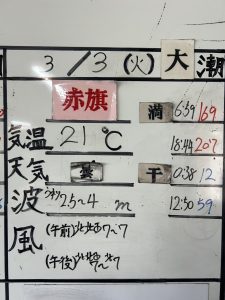 3/3(火)大潮
赤旗 満 6:59 169
気温 21℃ 18:44 207
天気 曇 干 0:38 12
波 うねり 2.5~4 m 12:50 59
風 (午前) 7~7
(午後) 7~7